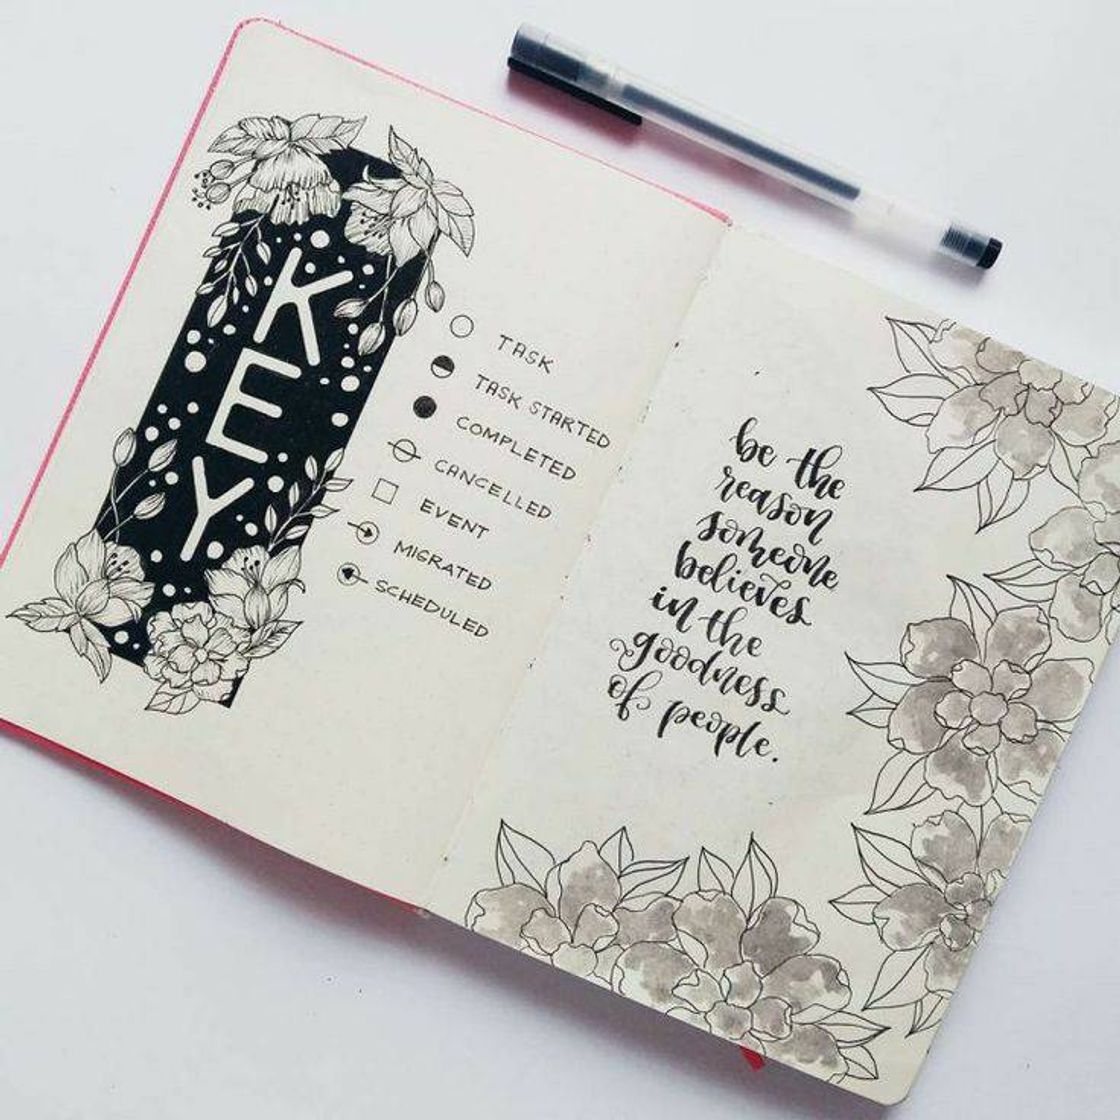 KEY
TASK
TASK STARTED
COMPLETED
CANCELLED
EVENT
MIGRATED
SCHEDULED
be the
reason
someone
believes
in the
goodness
of people.